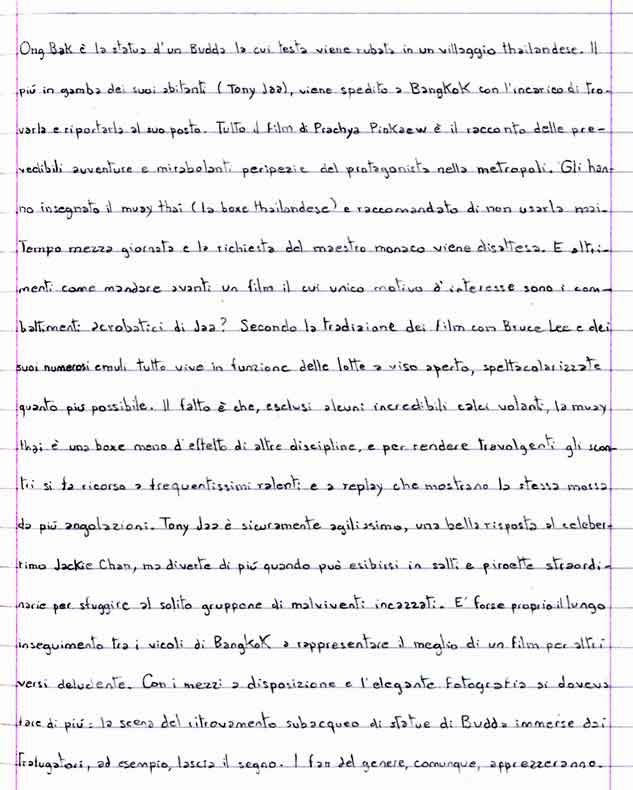 Ong Bak è la statua d'un Budda la cui testa viene rubata in un villaggio thailandese. Il
più in gamba dei suoi abitanti (Tony Jaa), viene spedito a Bangkok con l'incarico di tro-
varla e riportarla al suo posto. Tutto il film di Prachya Pinkaew è il racconto delle pre-
vedibili avventure e mirabolanti peripezie del protagonista nella metropoli. Gli han-
no insegnato il muay thai (la boxe thailandese) e raccomandato di non usarla mai.
Tempo mezza giornata e la richiesta del maestro monaco viene disattesa. E altri-
menti come mandare avanti un film il cui unico motivo d'interesse sono i com-
battimenti acrobatici di Jaa? Secondo la tradizione dei film con Bruce Lee e dei
suoi numerosi emuli tutto vive in funzione delle lotte a viso aperto, spettacolarizzate
quanto più possibile. Il fatto è che, esclusi alcuni incredibili calci volanti, la muay
thai è una boxe meno d'effetto di altre discipline, e per rendere travolgenti gli scon-
tri si fa ricorso a frequentissimi ralenti e a replay che mostrano la stessa mossa
da più angolazioni. Tony Jaa è sicuramente agilissimo, una bella risposta al celeber-
rimo Jackie Chan, ma diverte di più quando può esibirsi in salti e piroette straordi-
narie per sfuggire al solito gruppone di malviventi incazzati. E' forse proprio il lungo
inseguimento tra i vicoli di Bangkok a rappresentare il meglio di un film per altri
versi deludente. Con i mezzi a disposizione e l'elegante fotografia si doveva
fare di più: la scena del ritrovamento subacqueo di statue di Budda immerse dai
trafugatori, ad esempio, lascia il segno. I fan del genere, comunque, apprezzeranno.